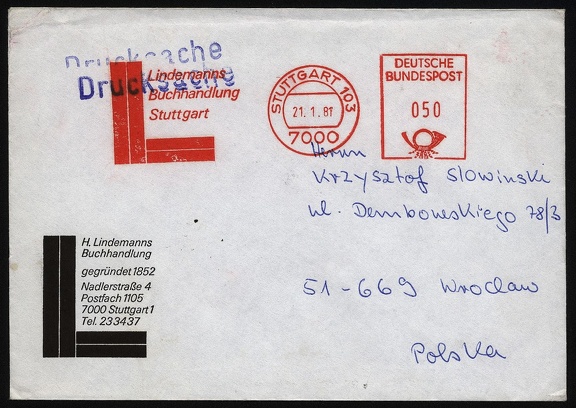 Drucksache
Drucksache
Lindemanns
Buchhandlung
Stuttgart
STUTTGART 103
21.1.81
7000
DEUTSCHE
BUNDESPOST
050
Herrn
Krzysztof Slowinski
ul. Dembowskiego 78/3
51-669 Wroclaw
Polska
H. Lindemanns
Buchhandlung
gegründet 1852
Nadlerstraße 4
Postfach 1105
7000 Stuttgart 1
Tel. 233437